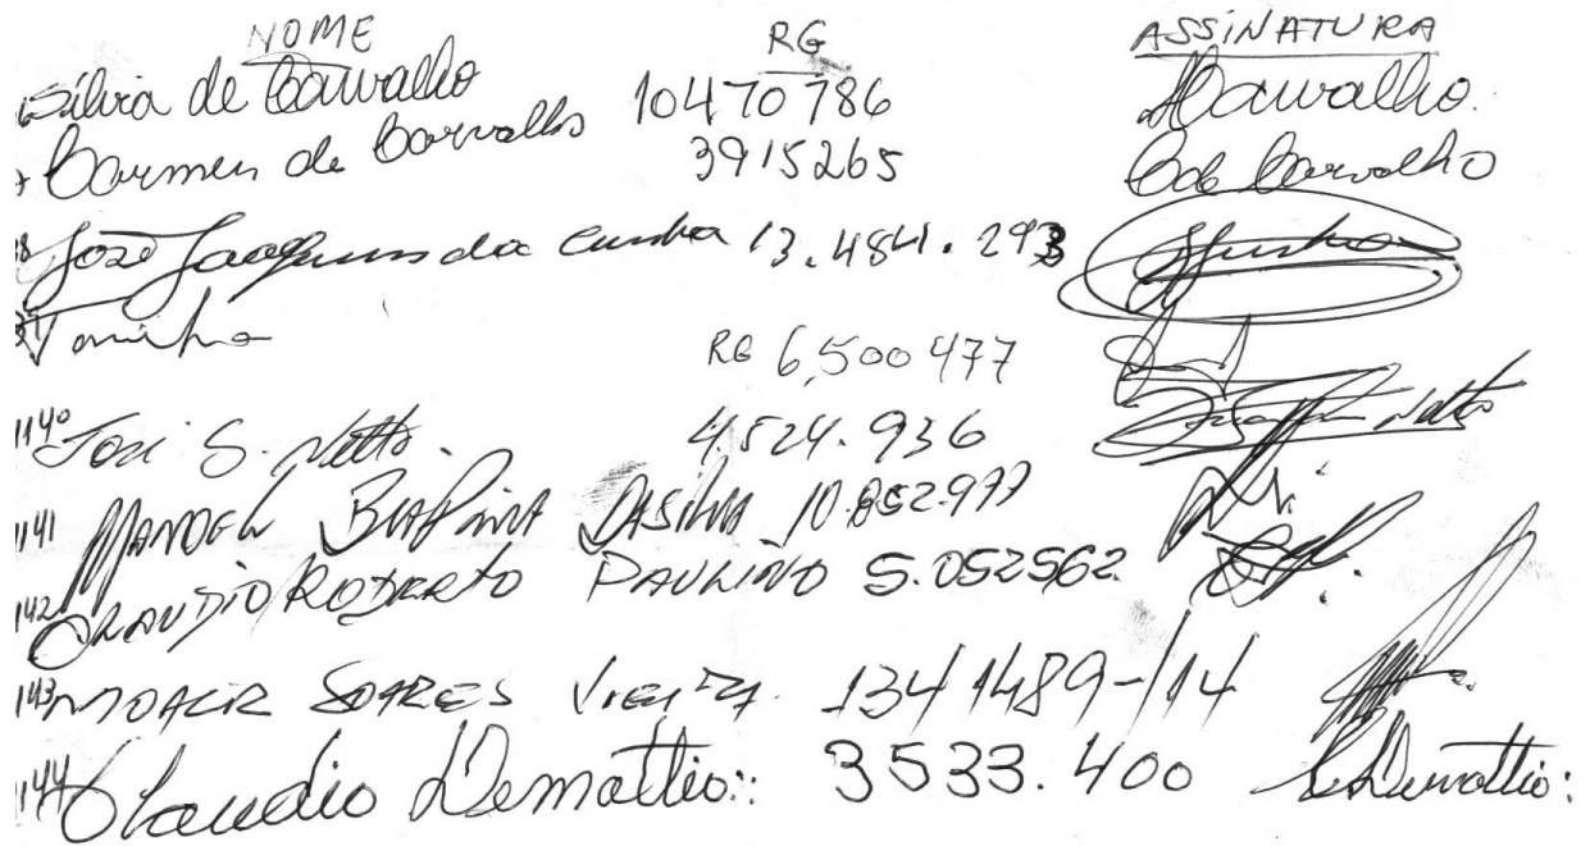 NOME RG ASSINATURA
Silvia de Carvalho 10470786 Carvalho
Carmen de Carvalho 3915265 C de Carvalho
38 José Joaquim da Cunha 13.484.293
Toninho RG 6,500477
1140 José S. Netto. 4.524.936 Netto
1141 MANOEL DASILVA 10.852.977
1142 CLAUDIO ROBERTO PAULINO 5.052562.
1143 MOACIR SOARES VIEIRA. 1341489-/14
1144 Claudio Demattio: 3533.400 C Demattio: